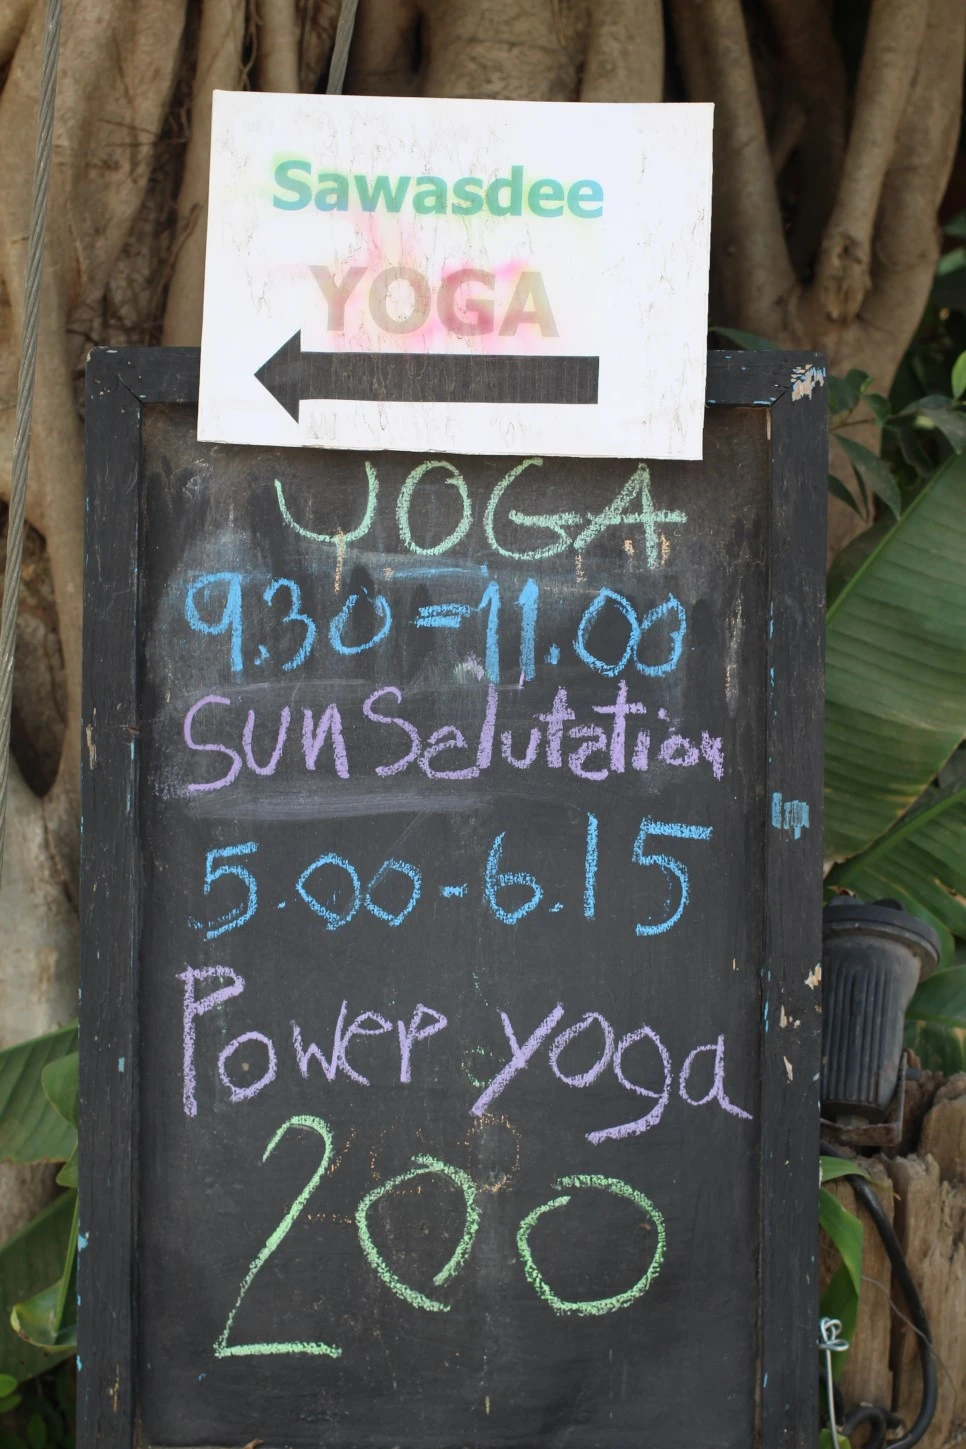 Sawasdee
YOGA
YOGA
9.30=11.00
SUN Salutation
5.00-6.15
Power yoga
200